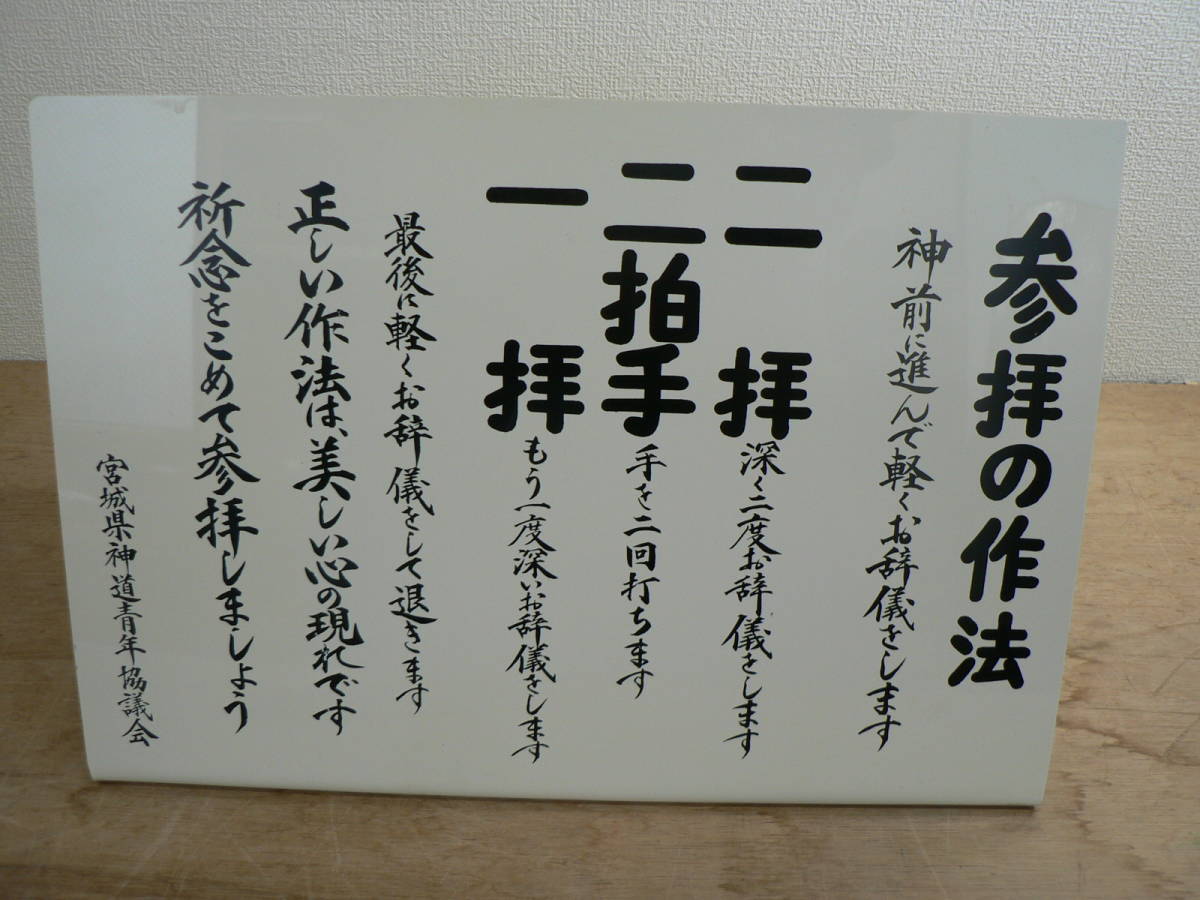 参拝の作法
神前に進んで軽くお辞儀をします
二拝 深く二度お辞儀をします
二拍手 手を二回打ちます
一拝 もう一度深いお辞儀をします
最後に軽くお辞儀をして退きます
正しい作法は、美しい心の現れです
祈念をこめて参拝しましょう
宮城県神道青年協議会